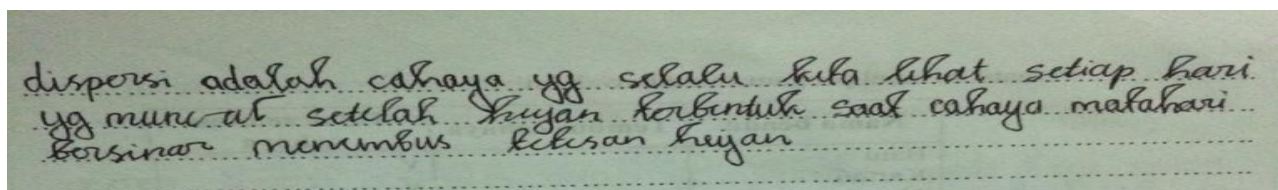 dispersi adalah cahaya yg selalu kita lihat setiap hari
yg muncul setelah hujan terbentuk saat cahaya matahari
bersinar menembus tetesan hujan